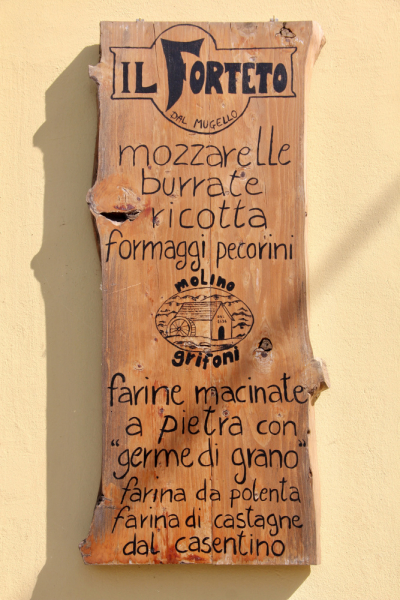 IL FORTETO
DAL MUGELLO
mozzarelle
burrate
ricotta
formaggi pecorini
molino
grifoni
farine macinate
a pietra con
"germe di grano"
farina da polenta
farina di castagne
dal casentino